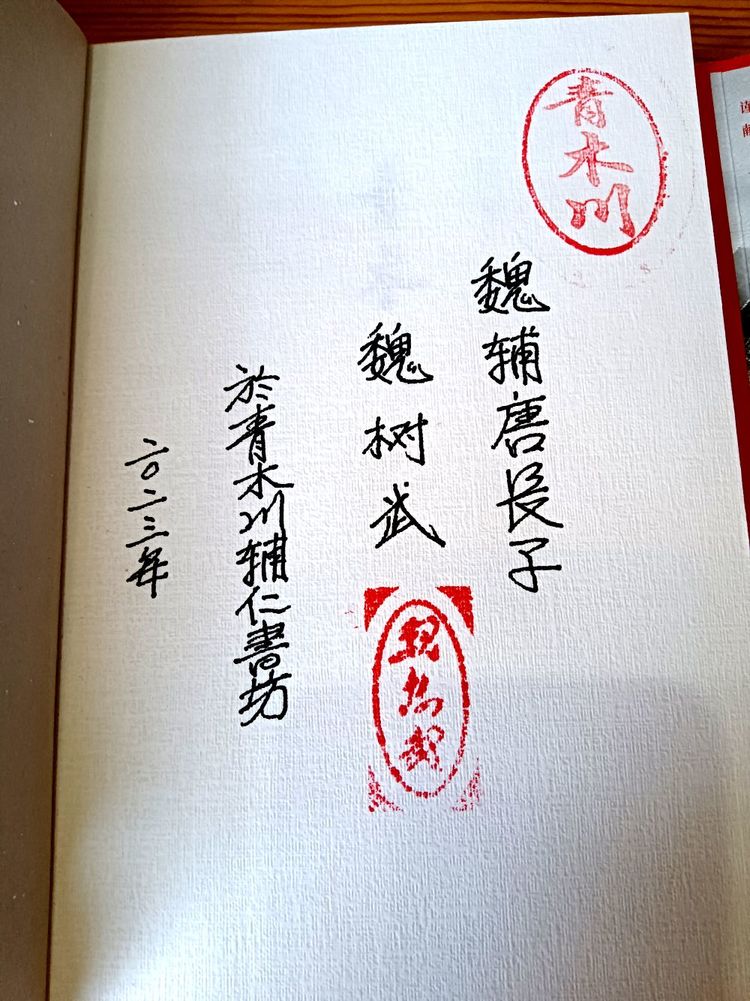 青木川
魏辅唐长子
魏树武
魏树武
於青木川辅仁書坊
二〇二三年